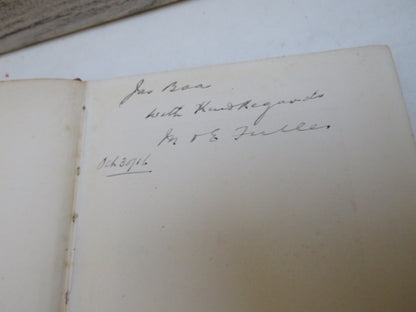 Jas Boa
with Kind Regards
M & E Fuller
Oct 30/06